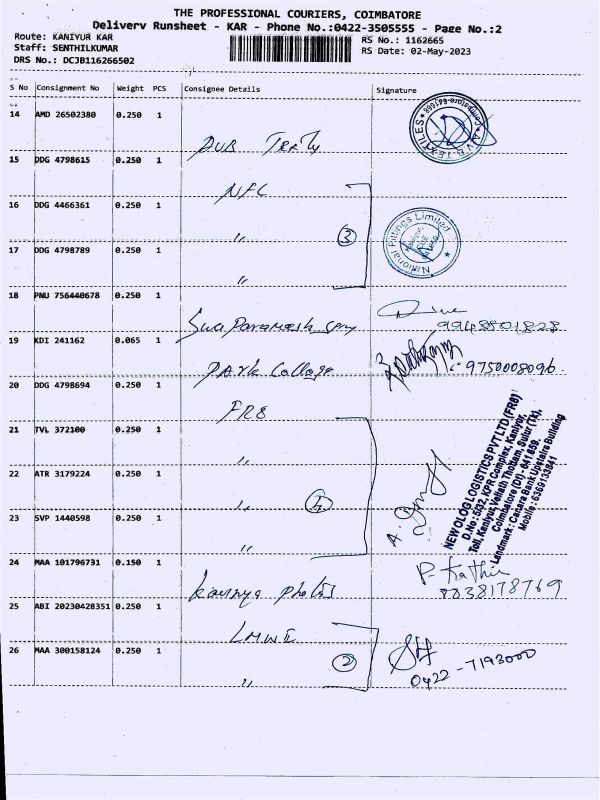 THE PROFESSIONAL COURIERS, COIMBATORE
Delivery Runsheet - KAR - Phone No.:0422-3505555 - Page No.:2
Route: KANIYUR KAR
RS No.: 1162665
Staff: SENTHILKUMAR
RS Date: 02-May-2023
DRS No.: DCJB116266502
S No Consignment No Weight PCS Consignee Details Signature
14 AMD 26502380 0.250 1
A.V.B.TEXTILES
15 DDG 4798615 0.250 1
NFC
16 DDG 4466361 0.250 1
"
3
National Fittings Limited
Kaniyur,
17 DDG 4798789 0.250 1
"
18 PNU 756440678 0.250 1
9948801828
19 KDI 241162 0.065 1
Park College
9750008096
20 DDG 4798694 0.250 1
FR8
21 TVL 372100 0.250 1
"
22 ATR 3179224 0.250 1
"
4
23 SVP 1440598 0.250 1
"
NEWOLOG LOGISTICS PVT LTD (FR8)
D.No: 5/32, KPR Complex, Kaniyur,
Toll, Kaniyur, Veliath Thottam, Sulur (Tk),
Coimbatore (Dt) - 641 659.
Landmark : Canara Bank Upstairs Building
Mobile : 6369133841
24 MAA 101796731 0.150 1
Kavinya Photos
8838178769
25 ABI 20230428351 0.250 1
LMW II
26 MAA 300158124 0.250 1
"
2
0422-7193000